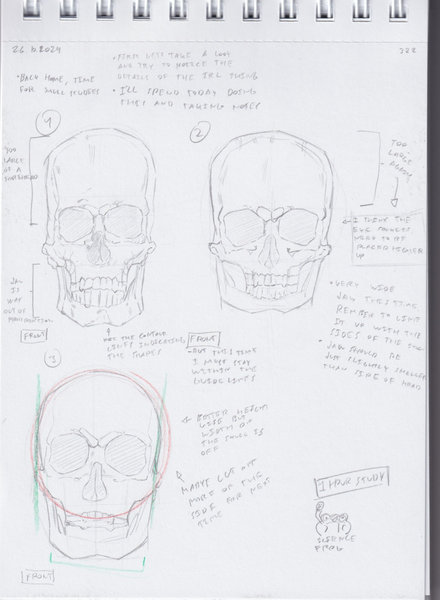 26.10.2024
322
• BACK HOME, TIME
FOR SKULL STUDIES
• FIRST LETS TAKE A LOOK
AND TRY TO NOTICE THE
DETAILS OF THE IRL THING
• I'LL SPEND TODAY DOING
THIS AND TAKING NOTES
1
TOO
LARGE
OF A
FOREHEAD
JAW
IS
WAY
OUT OF
PROPORTION
FRONT
USE THE CONTOUR
LINES INDICATING
THE SHAPES
2
TOO
LARGE
AGAIN
I THINK THE
EYE SOCKETS
NEED TO BE
PLACED HIGHER
UP
• VERY WIDE
JAW THIS TIME
REMEBER TO LINE
IT UP WITH THE
SIDES OF THE
• JAW SHOULD BE
JUST SLIGHTLY SMALLER
THAN SIDE OF HEAD
FRONT
BUT THIS TIME
I MUST STAY
WITHIN THE
GUIDELINES
3
BETTER HEIGHT
WISE BUT
WIDTH OF
THE SKULL IS
OFF
MAYBE CUT OFF
MORE OF THE
SIDE FOR NEXT
TIME
FRONT
1 HOUR STUDY
SCIENCE
FROG